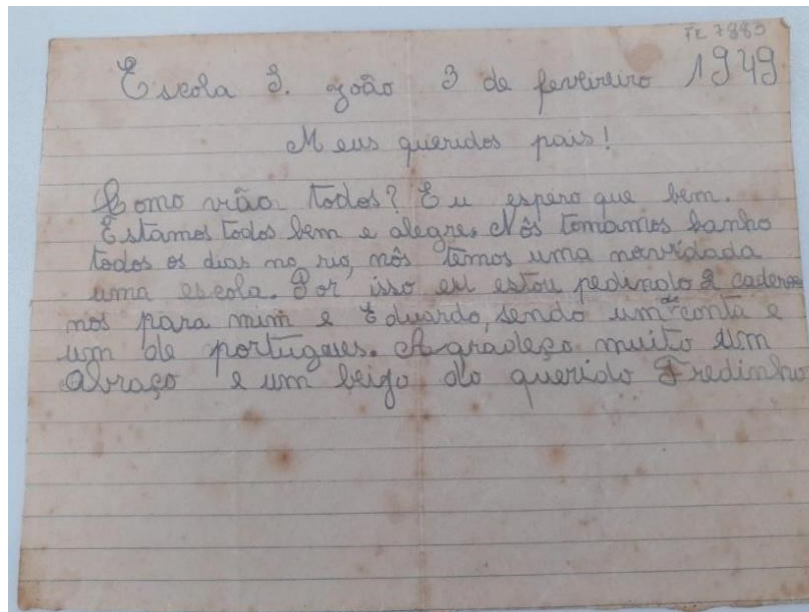 TC 7883
Escola S. João 3 de fevireiro 1949
Meus queridos pais!
Como vão todos? Eu espero que bem.
Estamos todos bem e alegre. Nós tomamos banho
todos os dias no rio, nós temos uma novidada
uma escola. Por isso eu estou pedindo 2 caderno
nos para mim e Eduardo, sendo um de conta e
um de portugues. Agradeço muito Um
abraço e um beijo do querido Fredinho